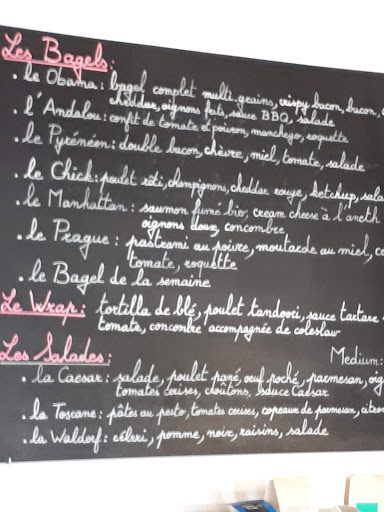 Les Bagels:
. le Obama: bagel complet multi-grains, crispy bacon, bacon,
cheddar, oignons frits, sauce BBQ, salade
. l'Andalou: confit de tomate et poivron, manchego, roquette
. le Pyrénéen: double bacon, chèvre, miel, tomate, salade
. le Chick: poulet rôti, champignons, cheddar rouge, ketchup, sala
. le Manhattan: saumon fumé bio, cream cheese à l'aneth
oignons doux, concombre
. le Prague: pastrami au poivre, moutarde au miel, co
tomate, roquette
. le Bagel de la semaine
Le Wrap: tortilla de blé, poulet tandoori, sauce tartare
tomate, concombre accompagnée de coleslaw
Les Salades: Medium:
. la Caesar: salade, poulet pané, oeuf poché, parmesan, oig
tomates cerises, croûtons, sauce Caesar
. la Toscane: pâtes au pesto, tomates cerises, copeaux de parmesan, citron
. la Waldorf: céleri, pomme, noix, raisins, salade